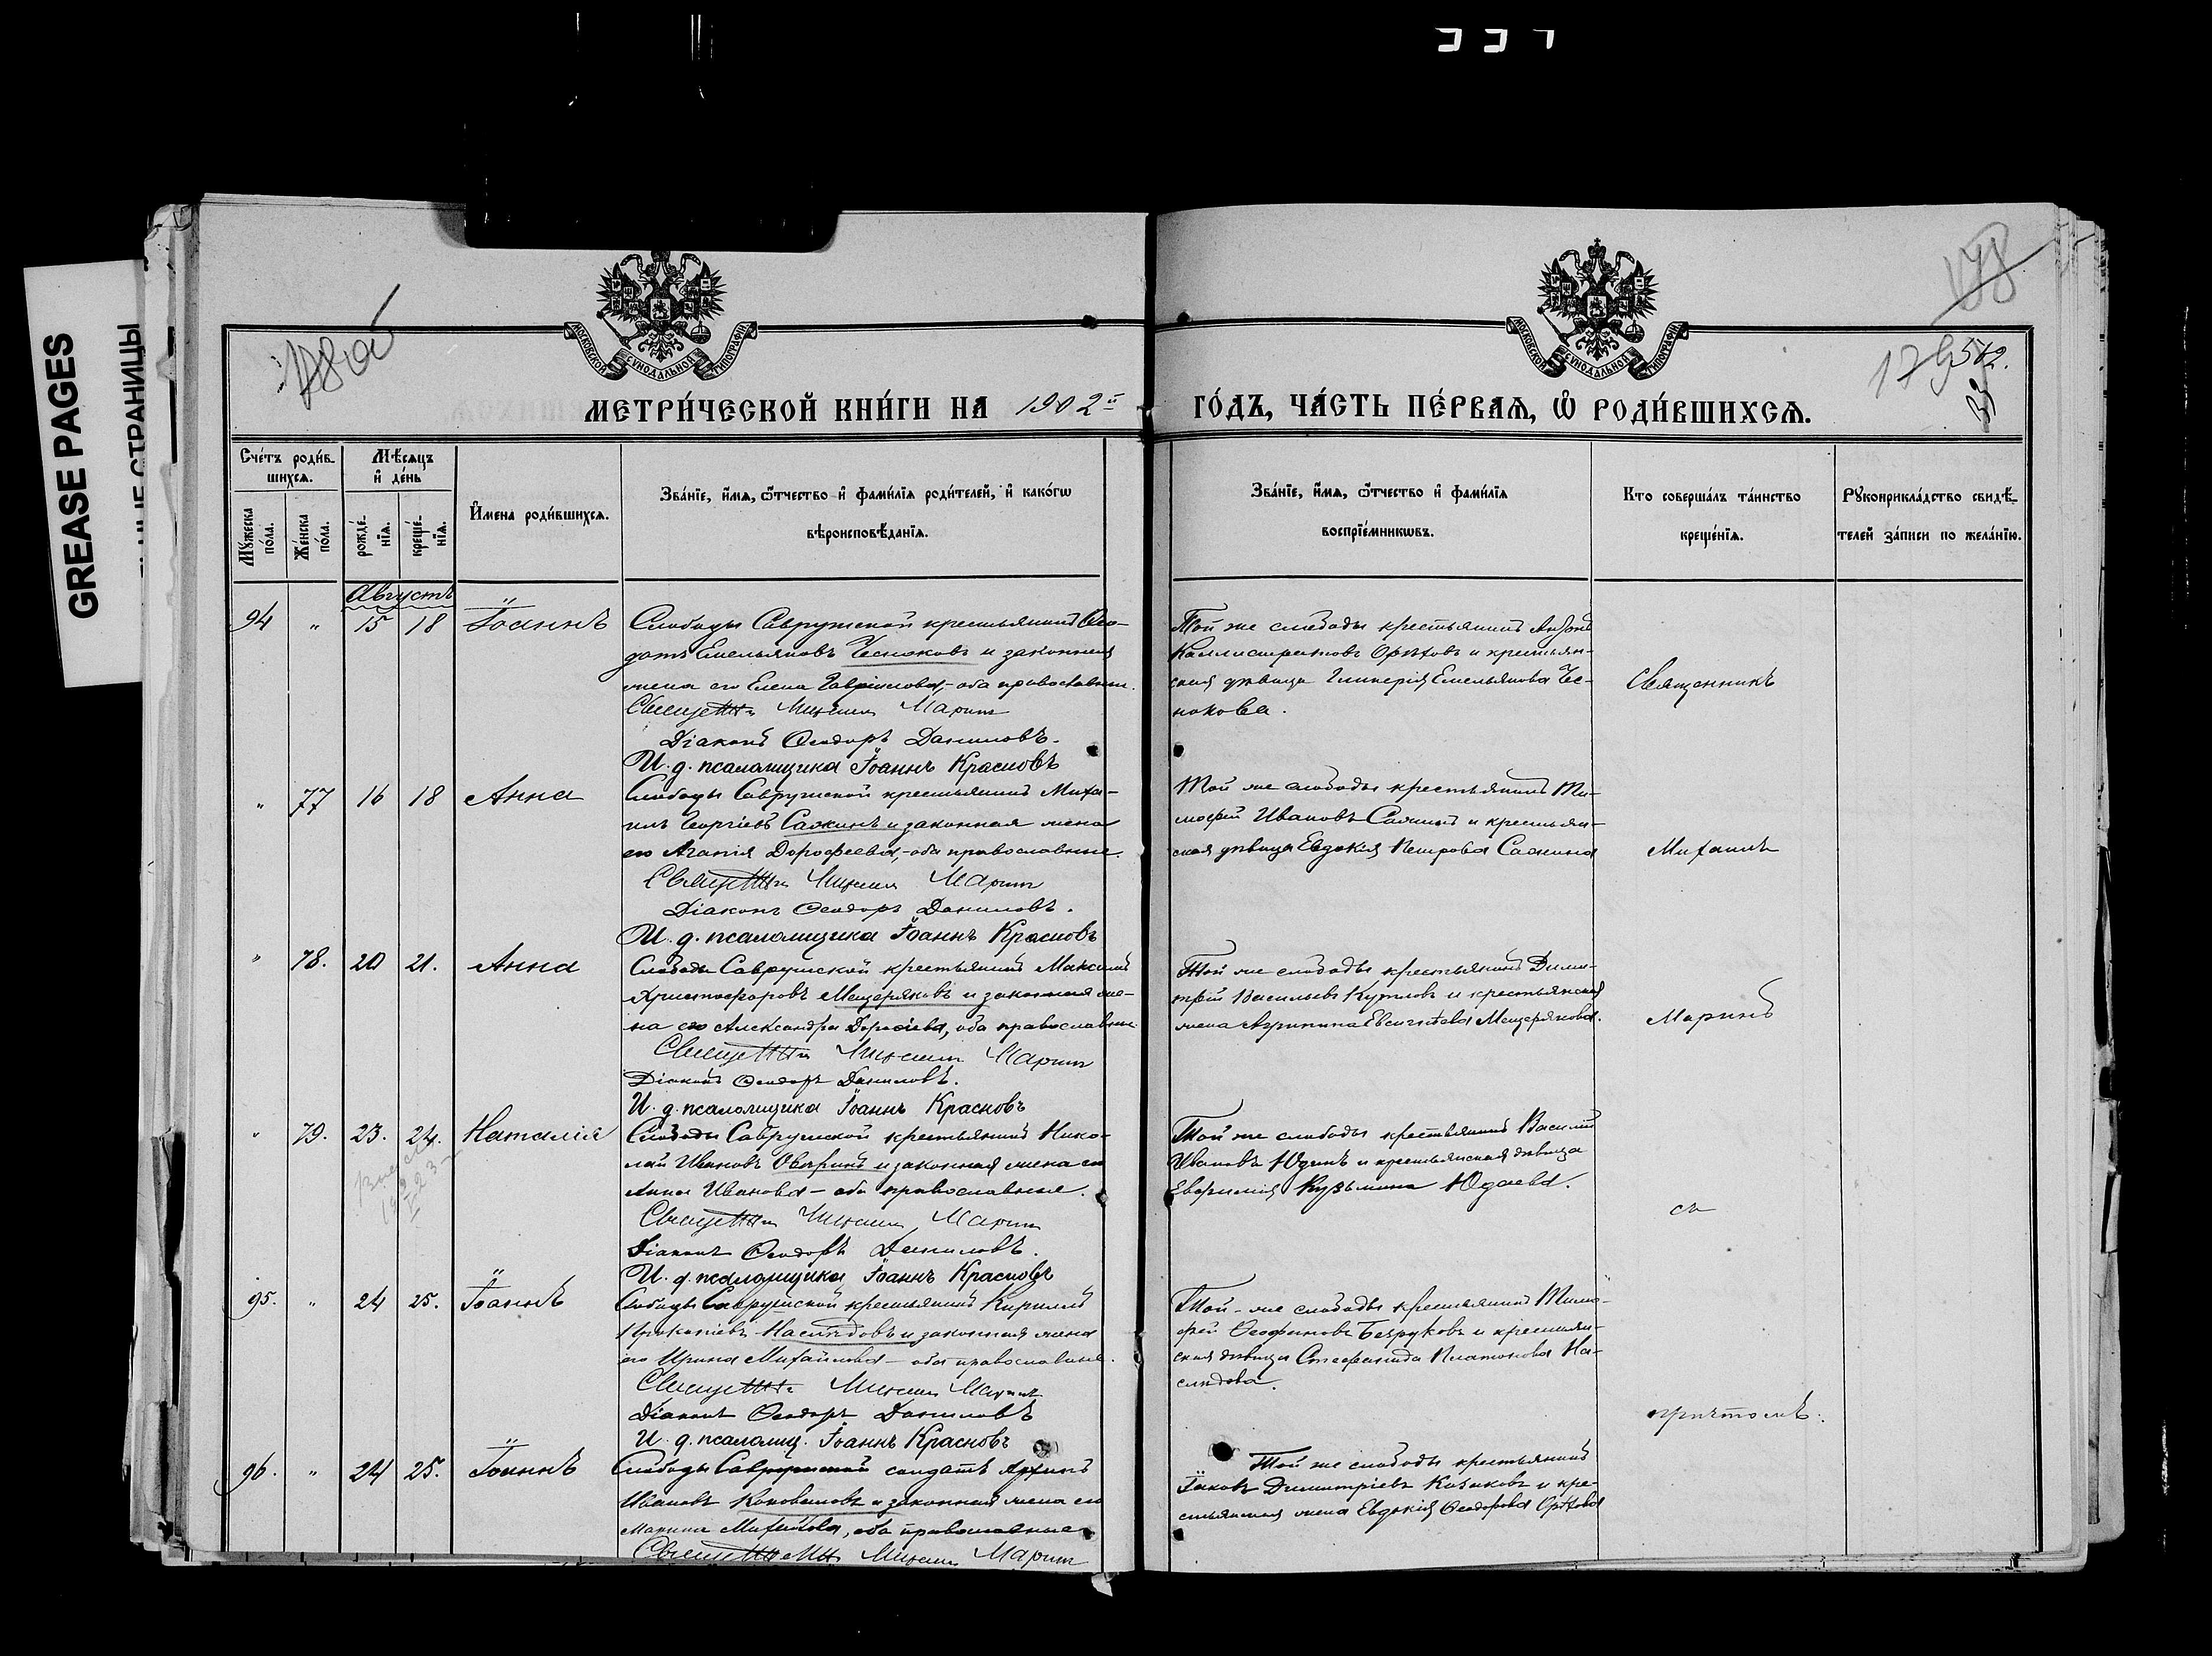 GREASE PAGES
СТРАНИЦЫ
МОСКОВСКОЙ СѴНОДАЛЬНОЙ ТИПОГРАФІИ
МОСКОВСКОЙ СѴНОДАЛЬНОЙ ТИПОГРАФІИ
178
179
512.
МЕТРИ́ЧЕСКОЙ КНИ́ГИ НА 1902й ГО́ДЪ, ЧА́СТЬ ПЕ́РВАЯ, Ѽ РОДИ́ВШИХСЯ.
Сче́тъ роди́вшихся.
Му́жеска по́ла.
Же́нска по́ла.
Мѣ́сяцъ и де́нь
рожде́нїя.
креще́нїя.
И́мена роди́вшихся.
Зва́нїе, и́мя, ѻ҆́тчество и҆ фами́лїя роди́телей, и҆ како́гѡ
вѣроисповѣ́данїя.
Зва́нїе, и́мя, ѻ҆́тчество и҆ фами́лїя
воспрїе́мникѡвъ.
Кто̀ соверша́лъ та́инство
креще́нїя.
Рꙋкоприкла́дство свидѣ́-
телей за́писи по жела́нїю.
Августъ
94 " 15 18 Іоаннъ
Слободы Саврушской крестьянинъ Ѳео-
дотъ Емельяновъ Чесноковъ и законная
жена его Елена Гаврилова, оба православные.
Священникъ Михаилъ Маринъ
Діаконъ Ѳеодоръ Даниловъ.
И. д. псаломщика Іоаннъ Красновъ
Той же слободы крестьянинъ
Каллистратовъ и крестьян-
ская дѣвица Гликерія Емельянова Чес-
нокова.
Священникъ
" 77 16 18 Анна
Слободы Саврушской крестьянинъ Миха-
илъ Георгіевъ Сажинъ и законная жена
его Агапія Дорофеева, оба православные.
Священникъ Михаилъ Маринъ
Діаконъ Ѳеодоръ Даниловъ.
И. д. псаломщика Іоаннъ Красновъ
Той же слободы крестьянинъ Ти-
моѳей Ивановъ Сажинъ и крестьян-
ская дѣвица Евдокія Петрова Сажина
Михаилъ
" 78. 20 21. Анна
Слободы Саврушской крестьянинъ Максимъ
Христофоровъ Мещеряковъ и законная же-
на его Александра, оба православные.
Священникъ Михаилъ Маринъ
Діаконъ Ѳеодоръ Даниловъ.
И. д. псаломщика Іоаннъ Красновъ
Той же слободы крестьянинъ Дими-
трій Васильевъ и крестьянская
жена Агрипина Евсигнѣева Мещерякова.
Маринъ
" 79. 23. 24. Наталія
Слободы Саврушской крестьянинъ Нико-
лай Ивановъ и законная жена его
Анна Иванова – оба православные.
Священникъ Михаилъ Маринъ
Діаконъ Ѳеодоръ Даниловъ.
И. д. псаломщика Іоаннъ Красновъ
Той же слободы крестьянинъ Василій
Ивановъ Юдинъ и крестьянская дѣвица
Евфимія Кузьмина Юдаева.
съ
95. " 24 25. Іоаннъ
Слободы Саврушской крестьянинъ Кириллъ
Наслѣдовъ и законная жена
его Ирина Михайлова – оба православные.
Священникъ Михаилъ Маринъ
Діаконъ Ѳеодоръ Даниловъ
И. д. псаломщ. Іоаннъ Красновъ
Той-же слободы крестьянинъ Тимо-
фей Безруковъ и крестьян-
ская дѣвица Стефанида Платонова На-
слѣдова.
причтомъ.
96. " 24 25. Іоаннъ
Слободы Саврушской солдатъ
Ивановъ Коноваловъ и законная жена его
Марина, оба православные
Священникъ Михаилъ Маринъ
Той же слободы крестьянинъ
Іаковъ Димитріевъ Казаковъ и кре-
стьянская жена Евдокія Ѳеодорова